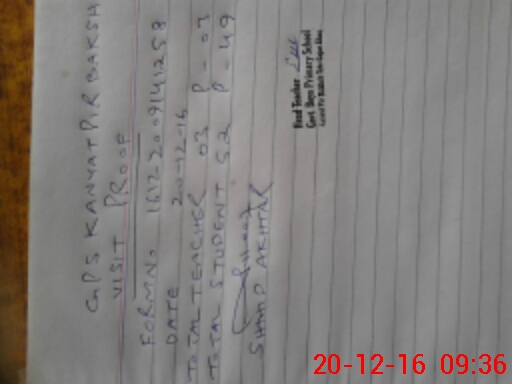 GPS KANYAT PIR BAKSH
VISIT PROOF
FORM NO 1612-2009141258
DATE 20-12-16
TOTAL TEACHER 03 P - 03
TOTAL STUDENT 52 P - 49
AKHTAR
Head Teacher
Govt. Boys Primary School
20-12-16 09:36